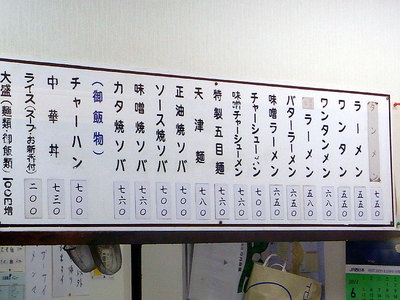 タンメン 七五〇
ラーメン 五五〇
ワンタン 五五〇
ワンタンメン 六五〇
ラーメン 五八〇
バターラーメン 六五〇
味噌ラーメン 六五〇
チャーシューメン 七〇〇
味噌チャーシューメン 七六〇
特製五目麺 七六〇
天津麺 七八〇
正油焼ソバ 七〇〇
ソース焼ソバ 七〇〇
味噌焼ソバ 七六〇
カタ焼ソバ 七六〇
(御飯物)
チャーハン 七〇〇
中華丼 七三〇
ライス(スープお新香付) 二〇〇
大盛(麺類御飯類)100円増
JR西日本
6